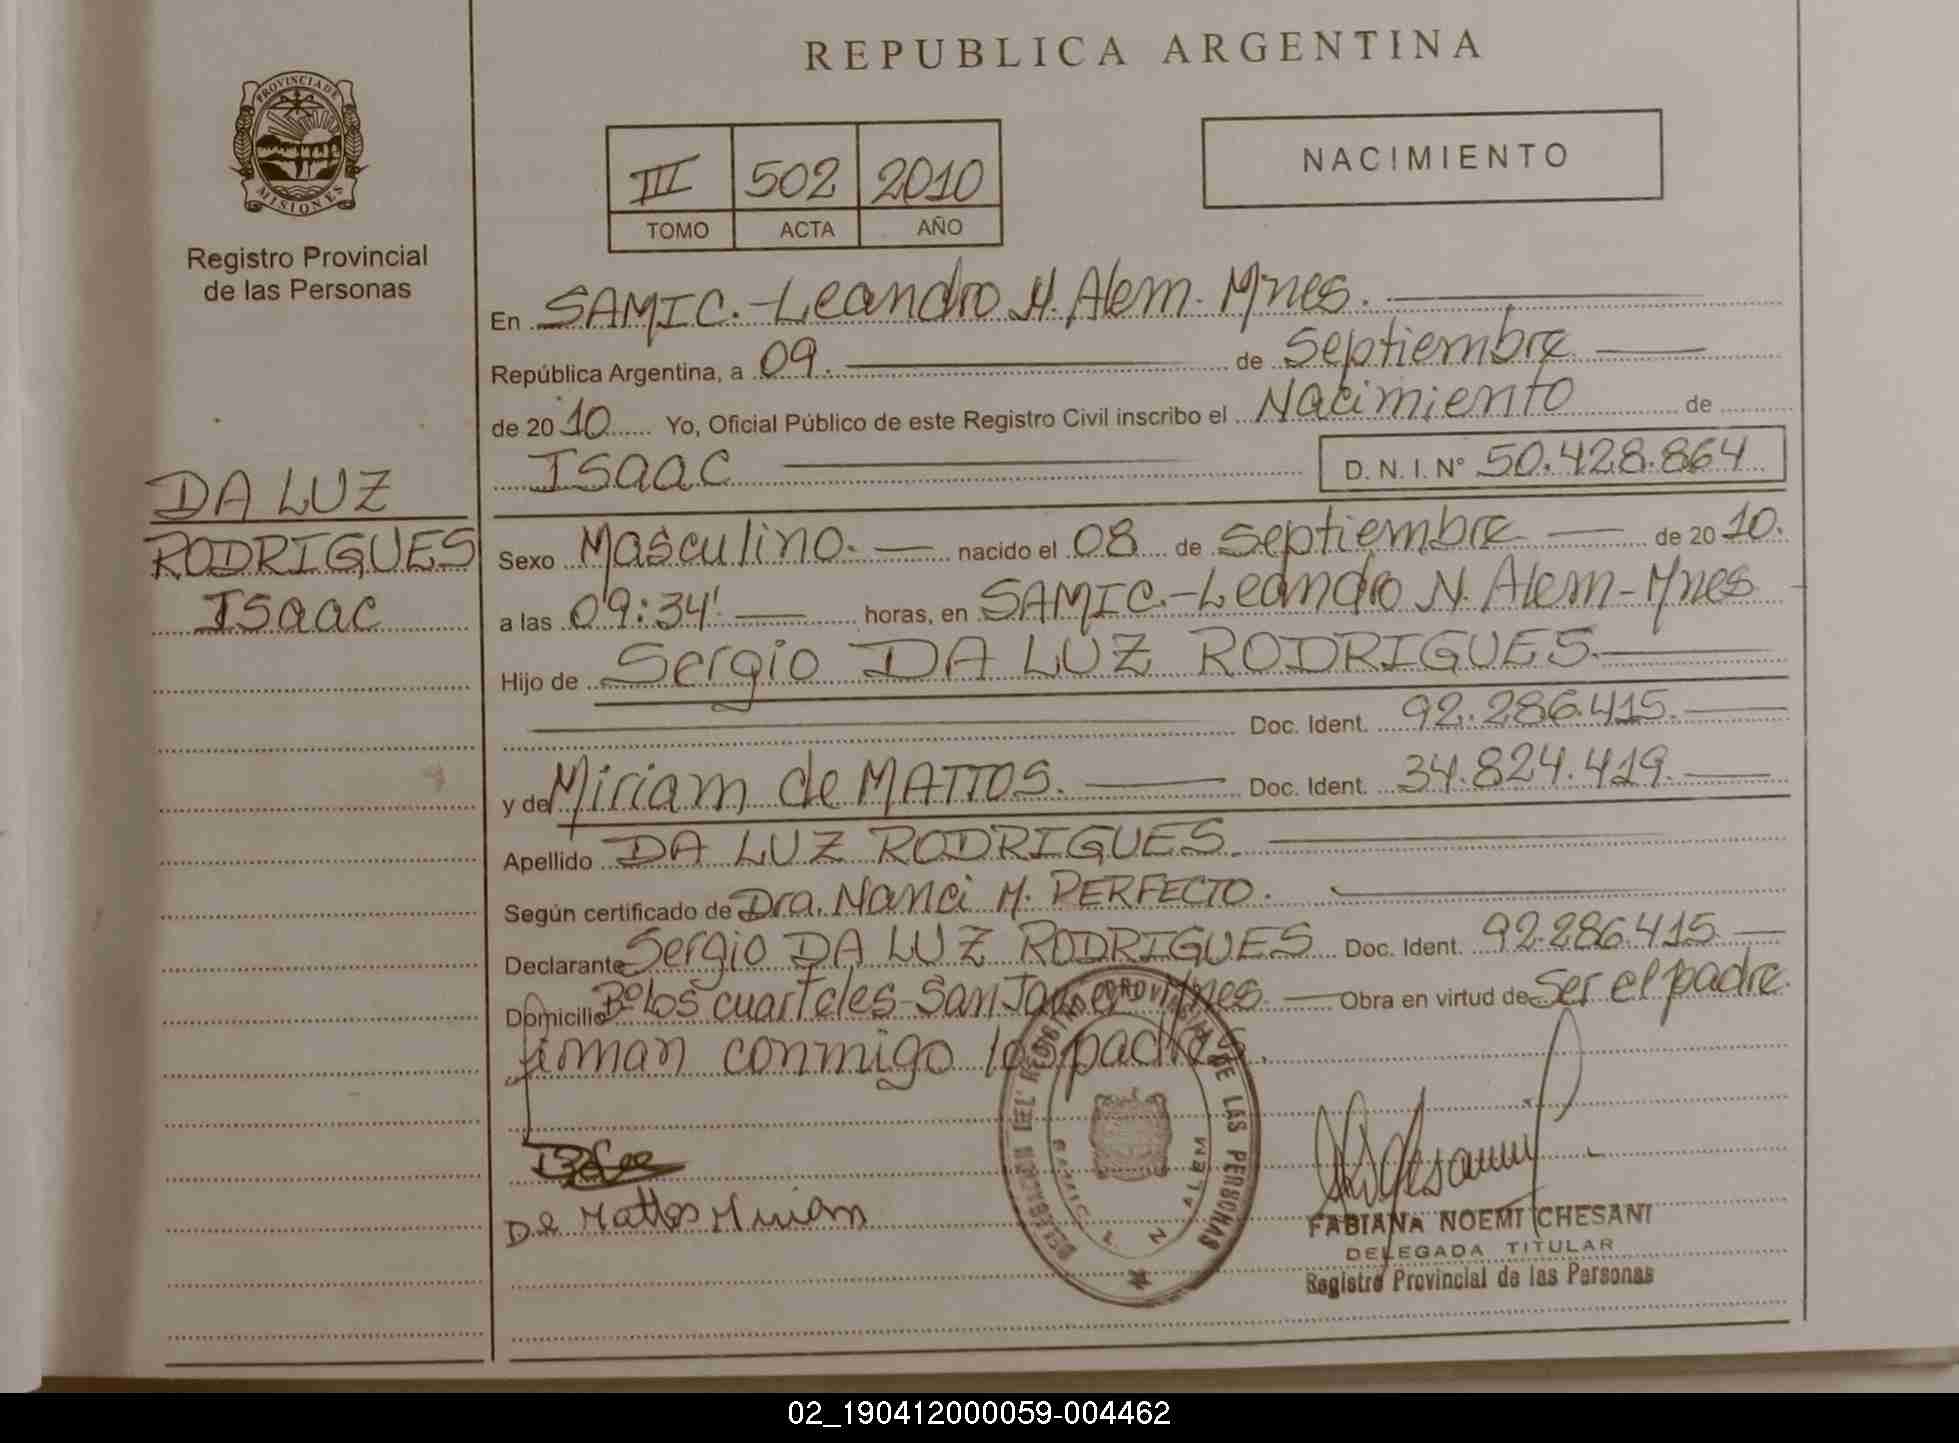 REPUBLICA ARGENTINA
PROVINCIA DE MISIONES
Registro Provincial
de las Personas
III 502 2010
TOMO ACTA AÑO
NACIMIENTO
En SAMIC.-Leandro N. Alem- Mnes.
República Argentina, a 09. de Septiembre
de 2010 Yo, Oficial Público de este Registro Civil inscribo el Nacimiento de
Isaac D. N. I. N° 50.428.864
DA LUZ
RODRIGUES
Isaac
Sexo Masculino. nacido el 08 de Septiembre de 2010.
a las 09:34' horas, en SAMIC.-Leandro N. Alem-Mnes
Hijo de Sergio DA LUZ RODRIGUES.
Doc. Ident. 92.286.415.
y de Miriam de MATTOS. Doc. Ident. 34.824.419.
Apellido DA LUZ RODRIGUES.
Según certificado de Dra. Nanci M. PERFECTO.
Declarante Sergio DA LUZ RODRIGUES Doc. Ident. 92.286.415
Domicilio B° Los cuarteles-San Javier Mnes. Obra en virtud de Ser el padre.
firman conmigo los padres.
De Mattos Miriam
DELEGACION DEL REGISTRO PROVINCIAL DE LAS PERSONAS
SAMIC L N ALEM
FABIANA NOEMI CHESANI
DELEGADA TITULAR
Registro Provincial de las Personas
02_190412000059-004462